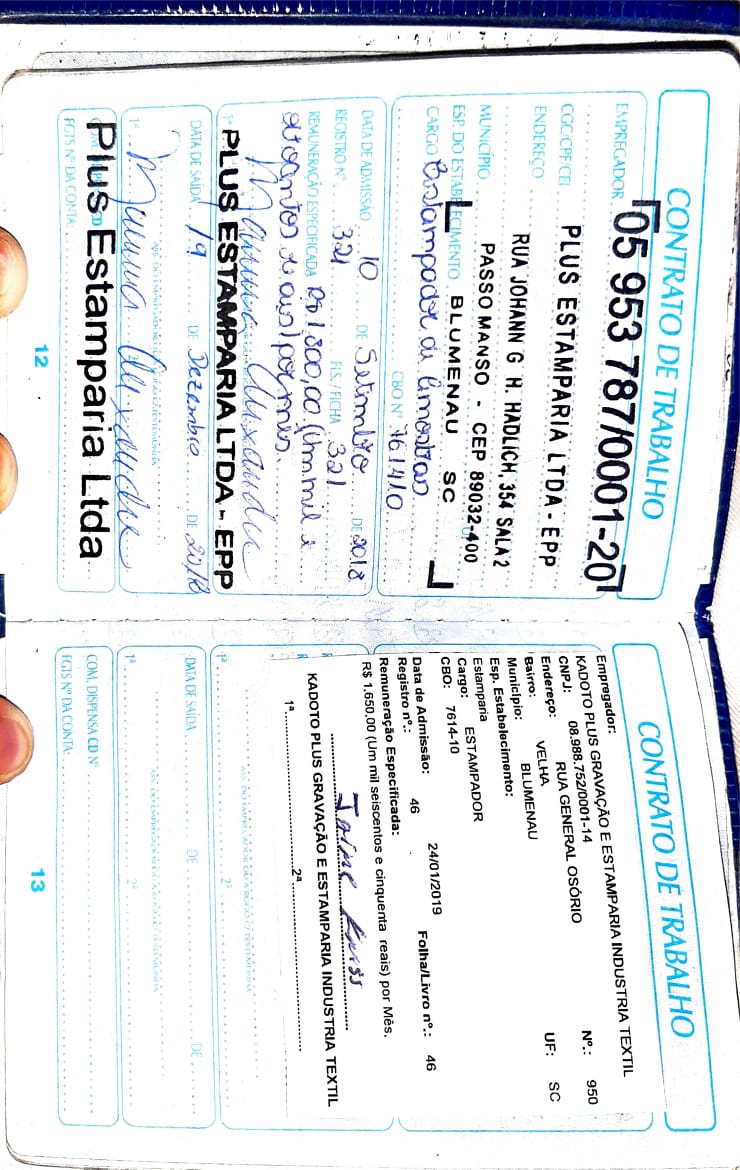 CONTRATO DE TRABALHO
EMPREGADOR
05 953 787/0001-20
CGC/CPF/CEI
PLUS ESTAMPARIA LTDA - EPP
ENDEREÇO
RUA JOHANN G H. HADLICH, 354 SALA 2
MUNICÍPIO
PASSO MANSO - CEP 89032-400
ESP. DO ESTABELECIMENTO BLUMENAU SC
CARGO Estampador de Amostras
CBO Nº 761410
DATA DE ADMISSÃO 10 DE Setembro DE 2018
REGISTRO Nº 321 FLS. / FICHA 321
REMUNERAÇÃO ESPECIFICADA R$ 1.800,00 (Um mil e
oitocentos reais) por mês.
1ª PLUS ESTAMPARIA LTDA - EPP
DATA DE SAÍDA 19 DE Dezembro DE 2018
1ª
Plus Estamparia Ltda
FGTS Nº DA CONTA
12
CONTRATO DE TRABALHO
Empregador:
KADOTO PLUS GRAVAÇÃO E ESTAMPARIA INDUSTRIA TEXTIL
CNPJ: 08.988.752/0001-14
Endereço: RUA GENERAL OSÓRIO Nº.: 950
Bairro: VELHA
Município: BLUMENAU UF: SC
Esp. Estabelecimento:
Estamparia
Cargo: ESTAMPADOR
CBO: 7614-10
Data de Admissão: 24/01/2019
Registro nº.: 46 Folha/Livro nº.: 46
Remuneração Especificada:
R$ 1.650,00 (Um mil seiscentos e cinquenta reais) por Mês.
KADOTO PLUS GRAVAÇÃO E ESTAMPARIA INDUSTRIA TEXTIL
1ª 2ª
1ª 2ª
DATA DE SAÍDA DE DE
1ª 2ª
COM. DISPENSA CD Nº
FGTS Nº DA CONTA:
13